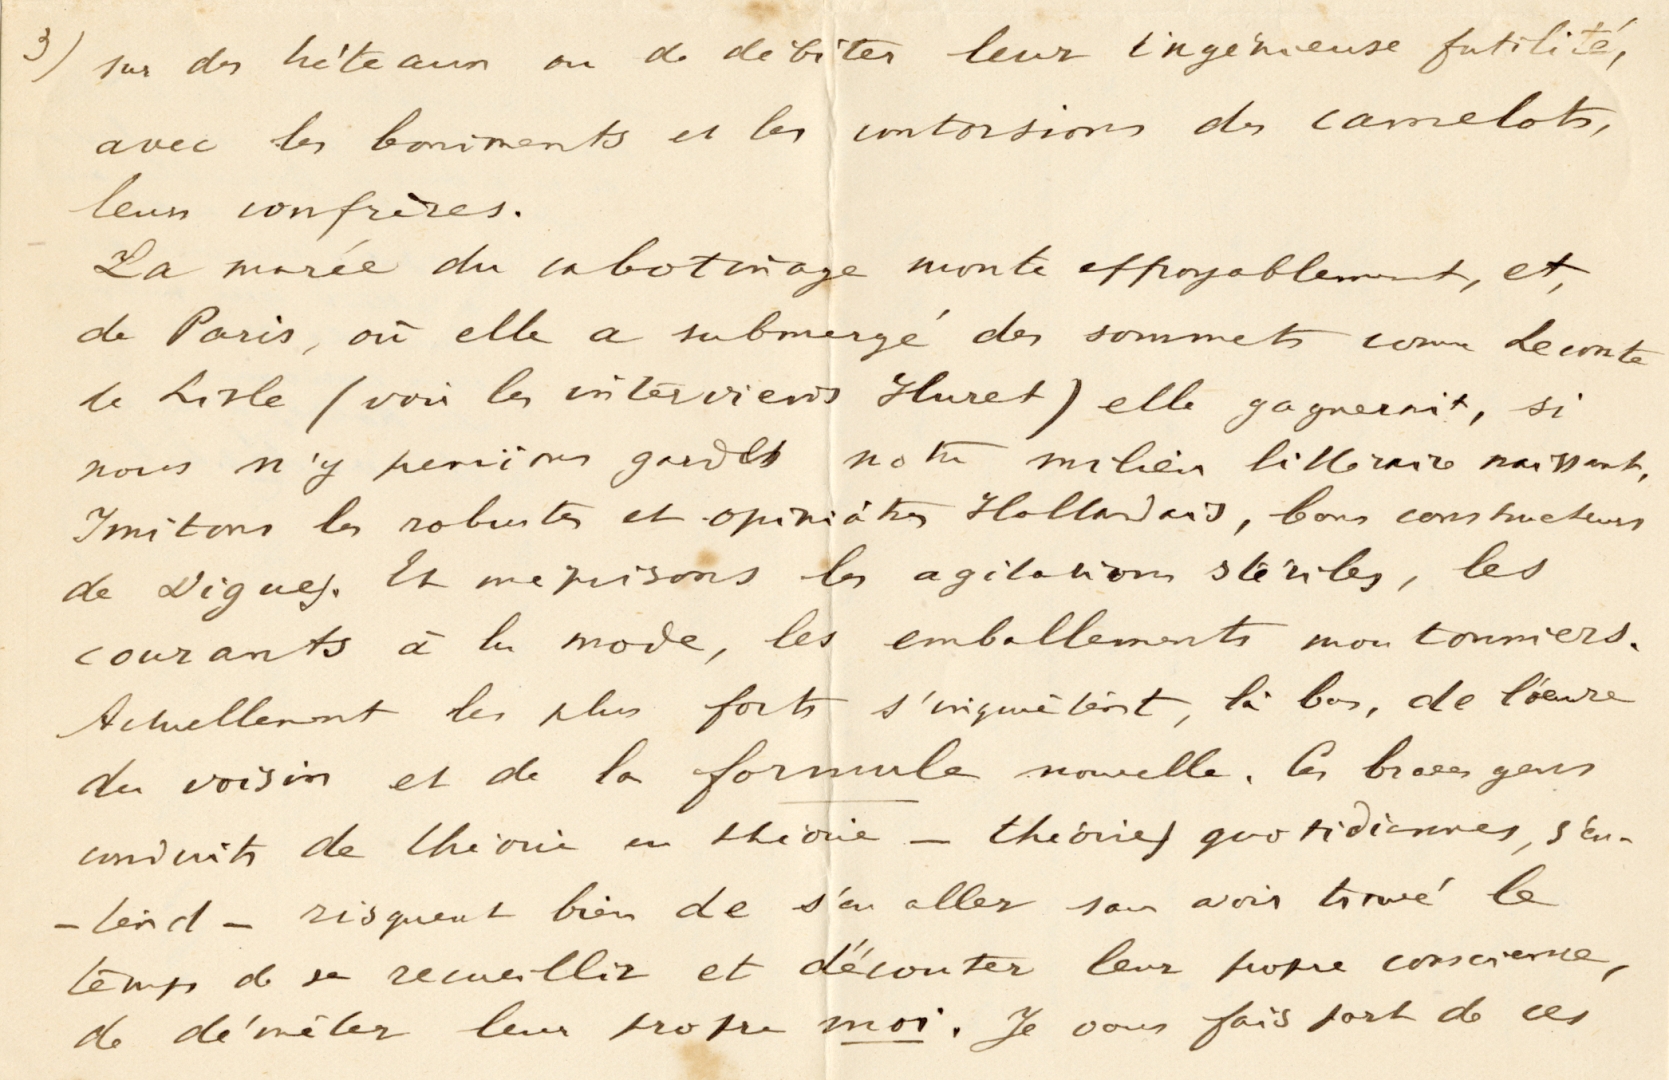 3) sur des tréteaux ou de débiter leur ingénieuse futilité,
avec les boniments et les contorsions des camelots,
leurs confrères.
La marée du cabotinage monte effroyablement, et,
de Paris, où elle a submergé des sommets comme Leconte
de Lisle (voir les interviews Huret) elle gagnerait, si
nous n'y prenions garde notre milieu littéraire naissant.
Imitons les robustes et opiniâtres Hollandais, bons constructeurs
de digues. Et méprisons les agitations stériles, les
courants à la mode, les emballements moutonniers.
Actuellement les plus forts s'inquiètent, là bas, de l'œuvre
du voisin et de la formule nouvelle. Ces braves gens
conduits de théorie en théorie — théories quotidiennes, s'en-
-tend — risquent bien de s'en aller sans avoir trouvé le
temps de se recueillir et d'écouter leur propre conscience,
de démêler leur propre moi. Je vous fais part de ces